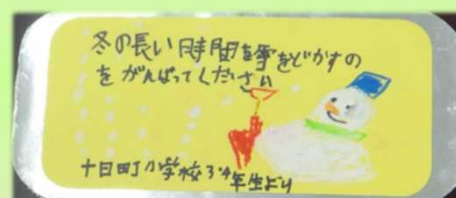 冬の長い時間を雪をどかすの
をがんばってください
十日町小学校3年生より